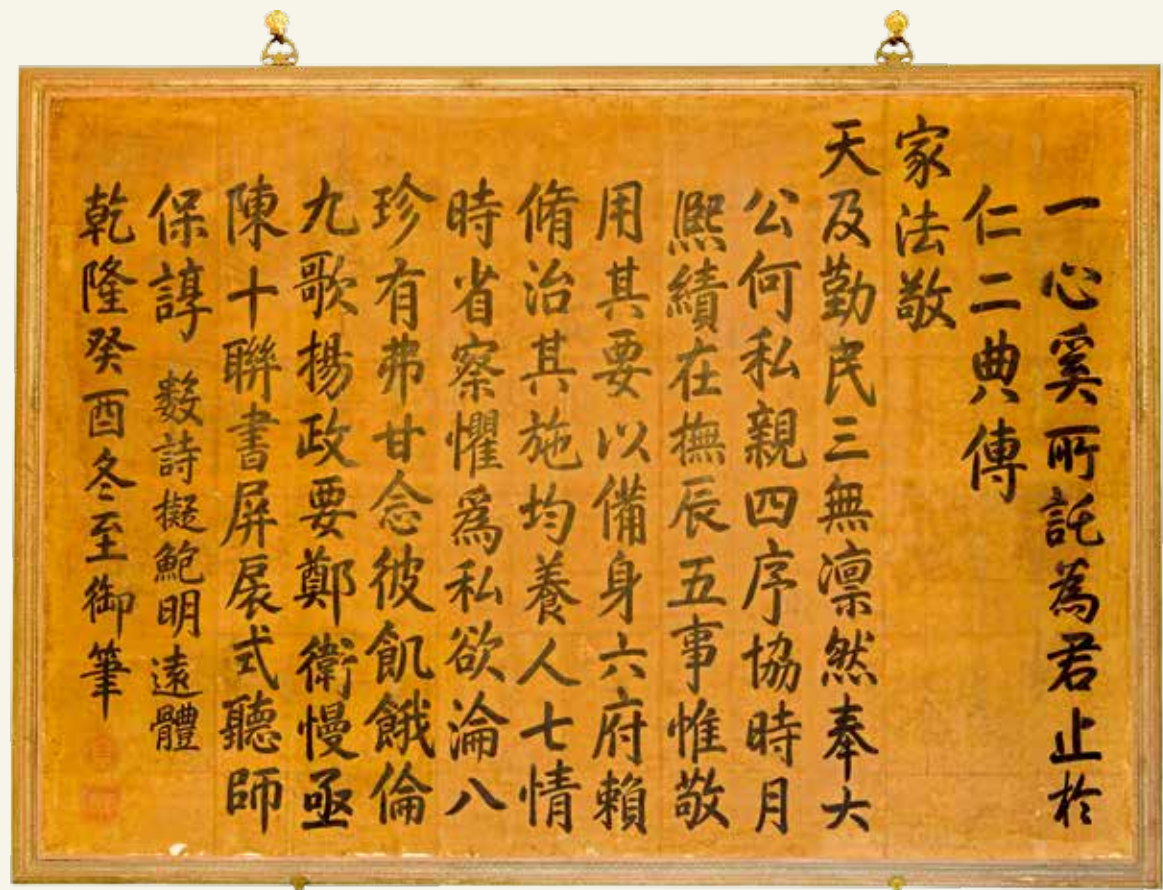 一心奚所託為君止於
仁二典傳
家法敬
天及勤民三無凛然奉大
公何私親四序協時月
熈績在撫辰五事惟敬
用其要以備身六府賴
脩治其施均養人七情
時省察懼爲私欲淪八
珍有弗甘念彼飢餓倫
九歌揚政要鄭衛慢亟
陳十聯書屏扆式聽師
保諄 數詩擬鮑明遠體
乾隆癸酉冬至御筆